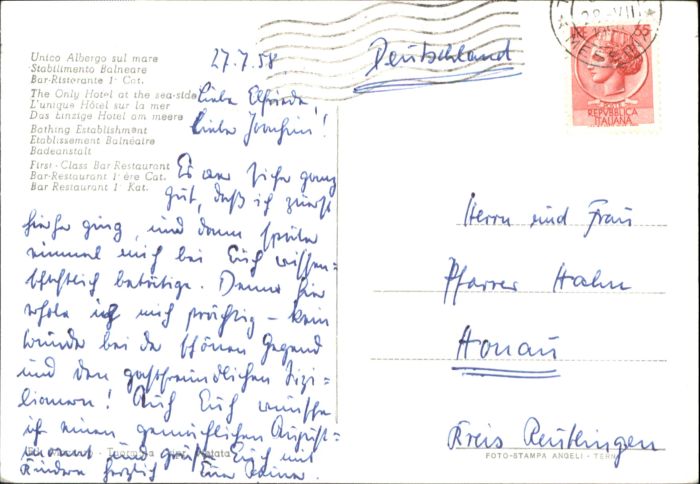 Unico Albergo sul mare
Stabilimento Balneare
Bar-Ristorante 1ª Cat.
The Only Hotel at the sea-side
L'unique Hôtel sur la mer
Das Einzige Hotel am meere
Bathing Establishment
Etablissement Balnéaire
Badeanstalt
First-Class Bar Restaurant
Bar-Restaurant 1ère Cat.
Bar Restaurant 1ª Kat.
27.7.58.
Liebe Elfriede,
lieber Joachim!
Es war sicher ganz
gut, daß ich zuerst
hierher ging, und dann später
einmal mich bei Euch wissen=
schaftlich betätige. Denn hier
erhole ich mich prächtig - kein
Wunder bei der schönen Gegend
und den gastfreundlichen Sizi=
lianern! Auch Euch wünsche
ich einen gemütlichen August=
und grüße Euch mit
Kindern herzlich Eure
Deutschland
28 VII
LIRE 65
REPVBBLICA
ITALIANA
Herrn und Frau
Pfarrer Hahn
Honau
Kreis Reutlingen
FOTO-STAMPA ANGELI - TERNI